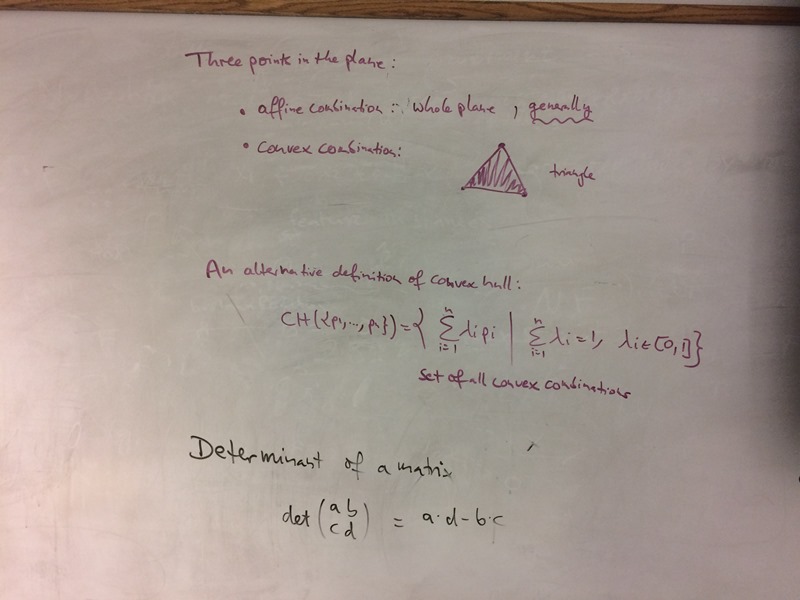 Three points in the plane:
• affine combination: whole plane, generally
• convex combination:
triangle
An alternative definition of convex hull:
CH({p₁,...,pᵢ}) = { ∑ⁿᵢ₌₁ λᵢpᵢ | ∑ⁿᵢ₌₁ λᵢ = 1, λᵢ ∈ [0,1] }
Set of all convex combinations
Determinant of a matrix
det (a b
c d) = a·d - b·c